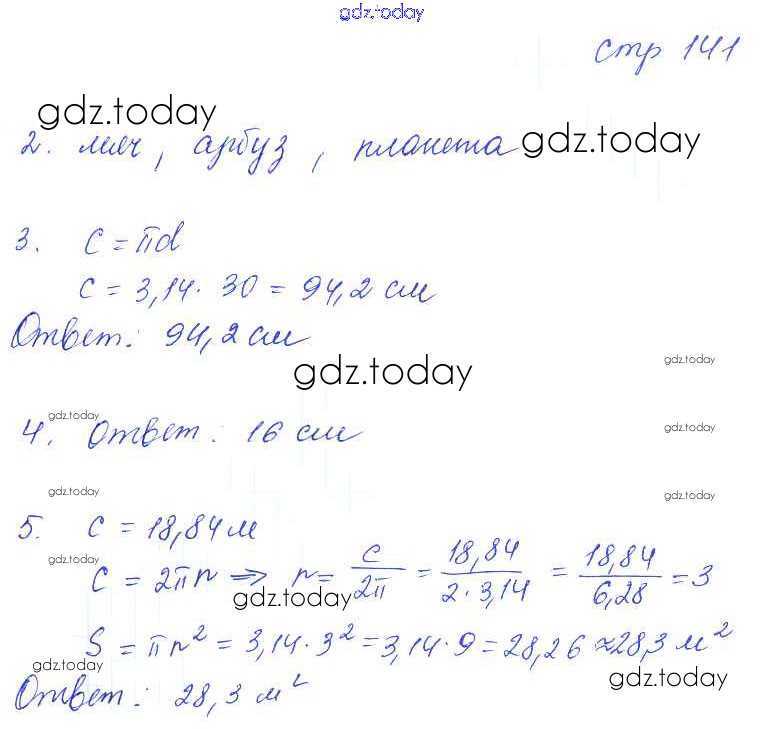 gdz.today
стр 141
gdz.today
2. мяч, арбуз, планета gdz.today
3. C = πd
C = 3,14 · 30 = 94,2 см
Ответ: 94,2 см
gdz.today
gdz.today
gdz.today
4. Ответ: 16 см
gdz.today
gdz.today
gdz.today
5. C = 18,84 м
gdz.today
C = 2πr => r = C/2π = 18,84/2·3,14 = 18,84/6,28 = 3
gdz.today
S = πr² = 3,14 · 3² = 3,14 · 9 = 28,26 ≈ 28,3 м²
gdz.today
gdz.today
Ответ: 28,3 м²